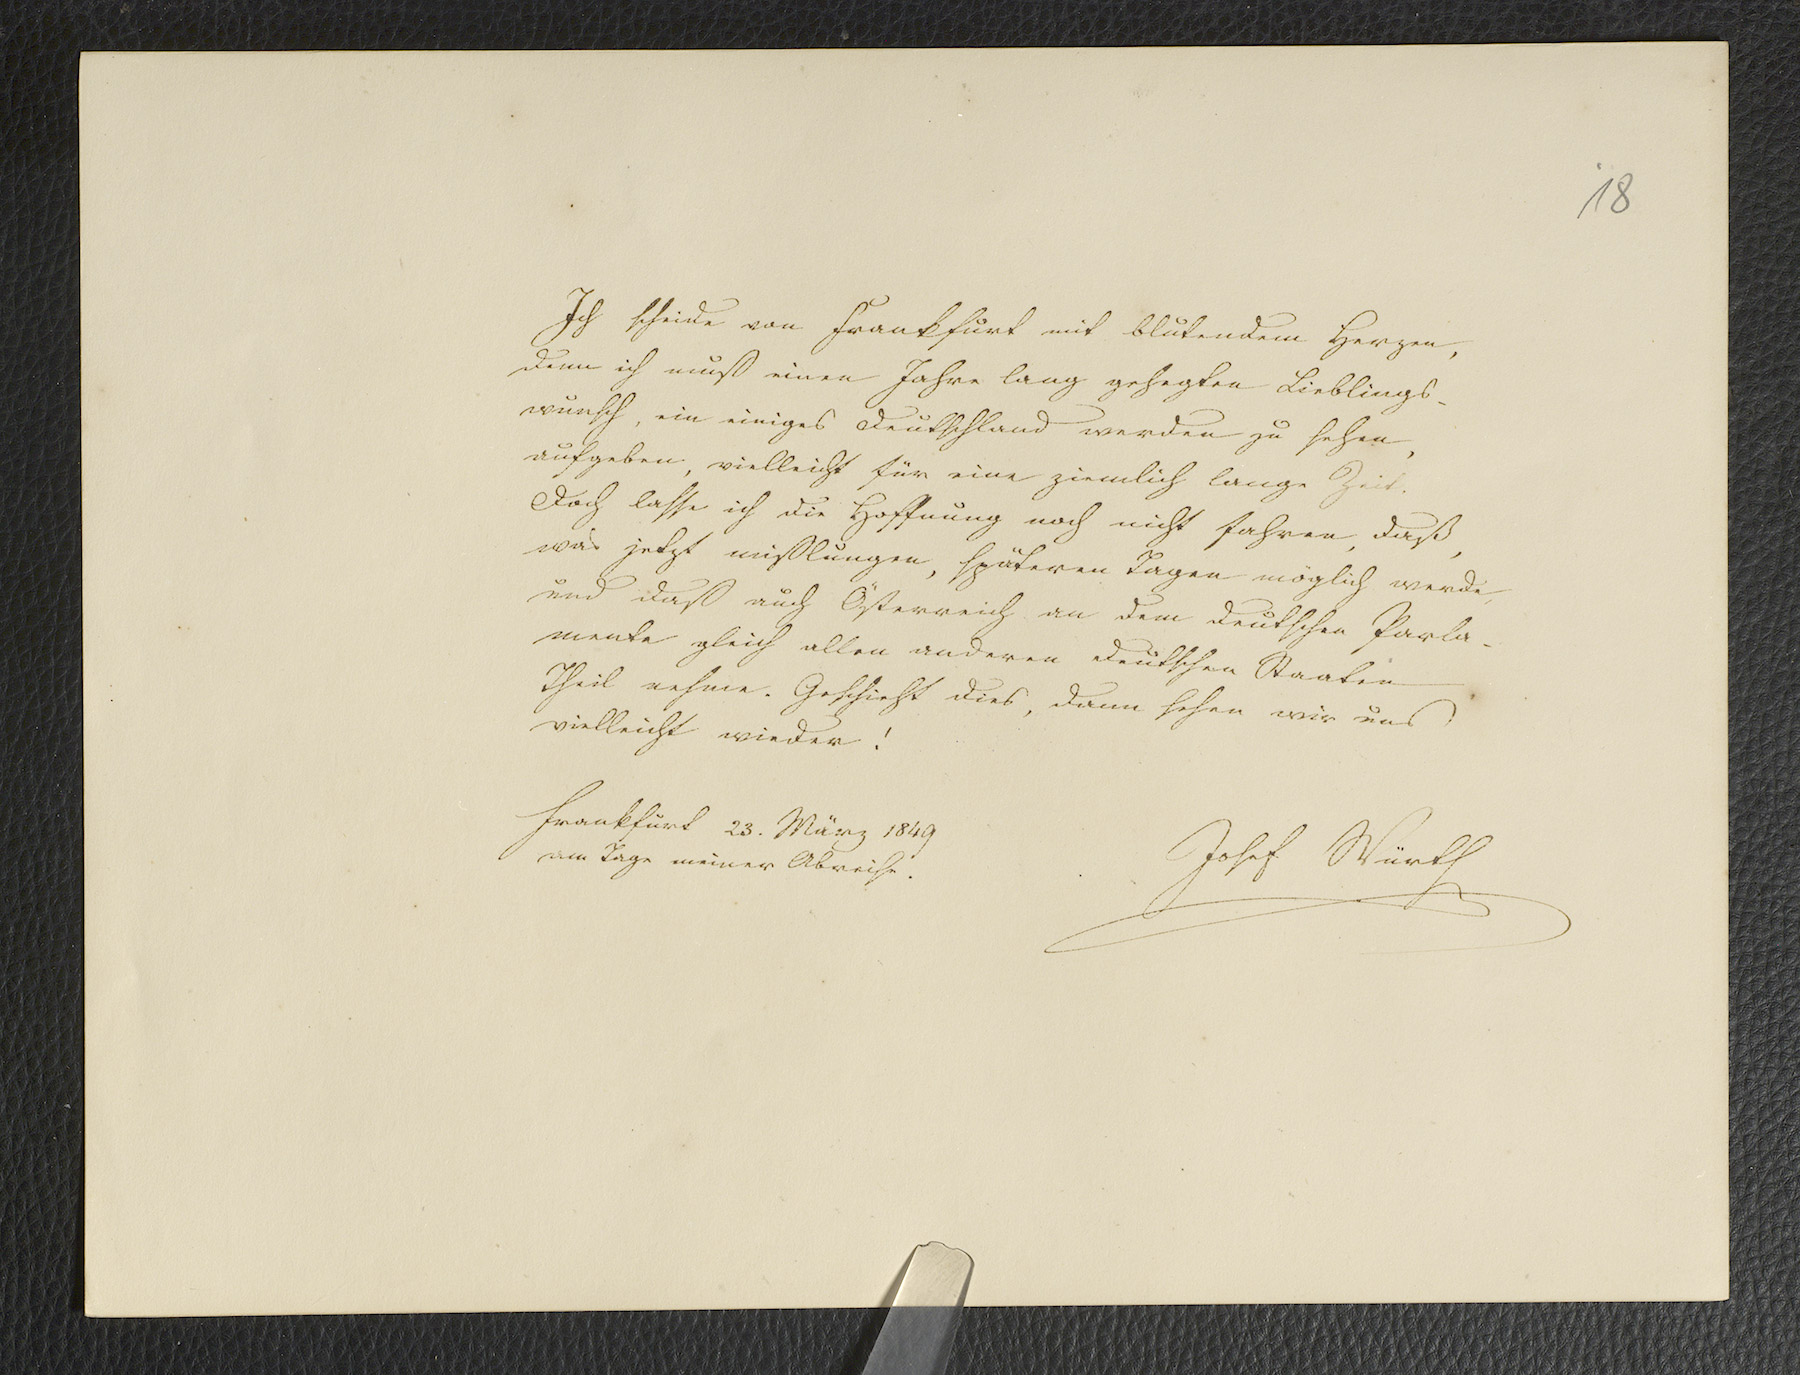 18
Ich scheide von Frankfurt mit blutendem Herzen,
denn ich muß einen Jahre lang gehegten Lieblings-
wunsch, ein einiges Deutschland werden zu sehen,
aufgeben, vielleicht für eine ziemlich lange Zeit.
Doch lasse ich die Hoffnung noch nicht fahren, daß,
was jetzt mißlungen, späteren Tagen möglich werde,
und daß auch Österreich an dem deutschen Parla-
mente gleich allen anderen deutschen Staaten
Theil nehme. Geschieht dies, dann sehen wir uns
vielleicht wieder!
Frankfurt 23. März 1849
am Tage meiner Abreise.
Josef Würth